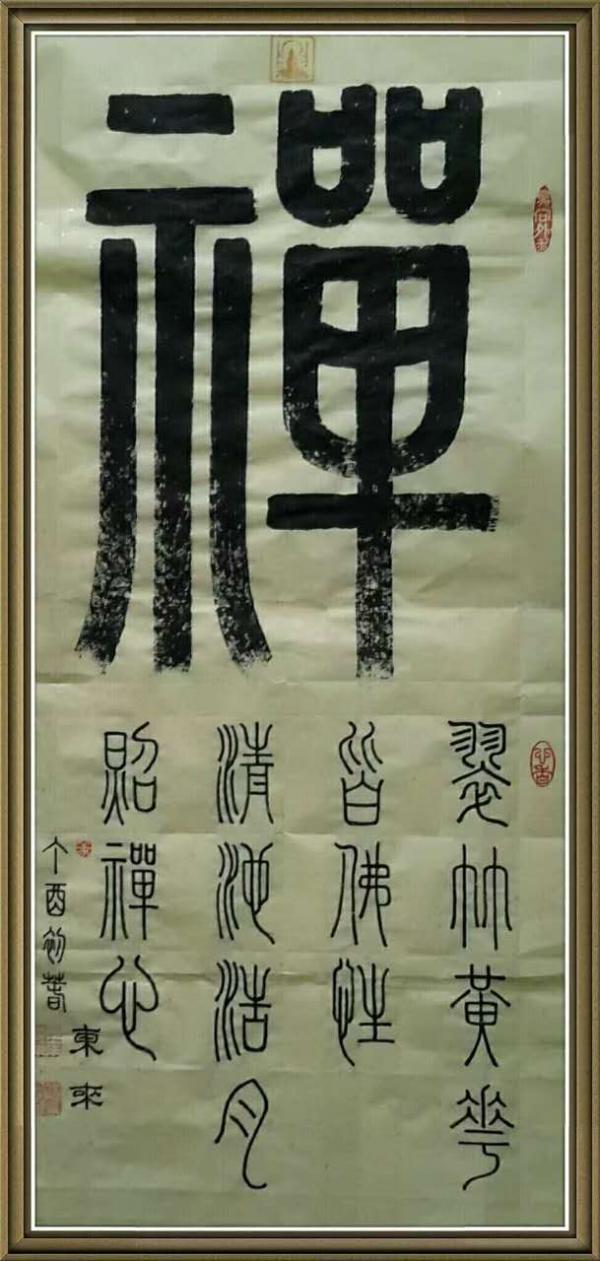 禪
翠竹黃花
皆佛性
清池浩月
照禪心
丁酉初春
東來
心香